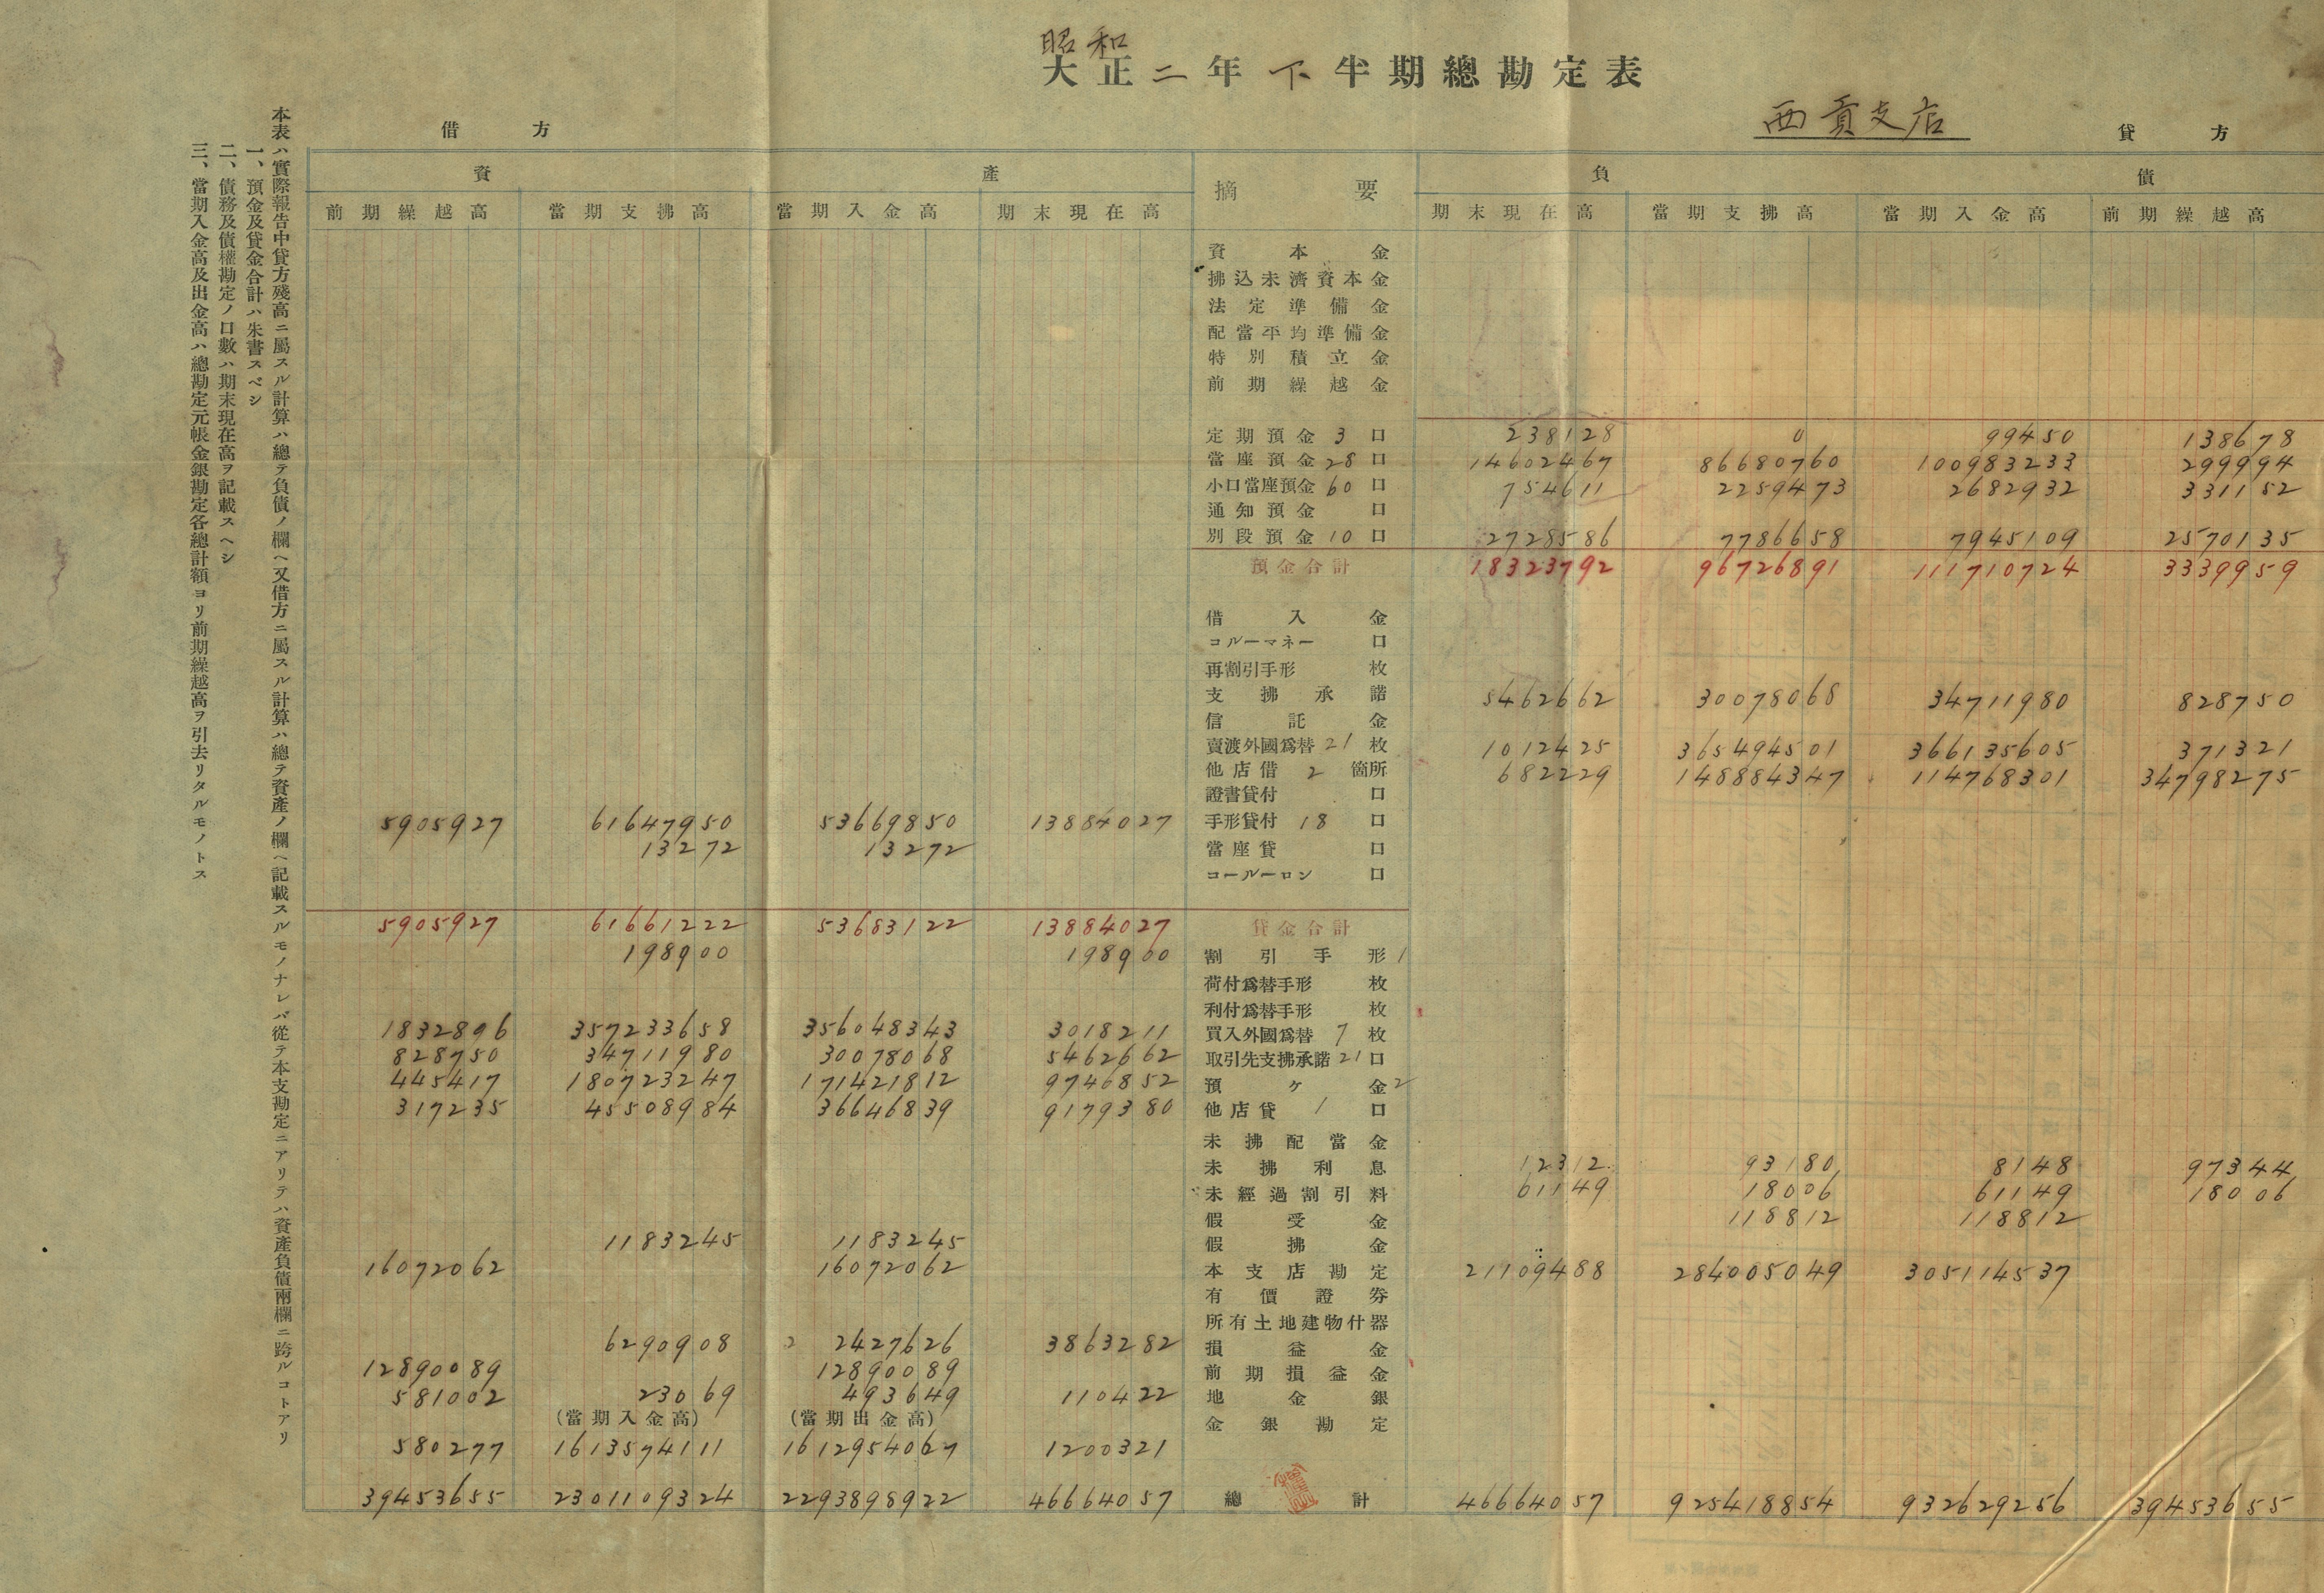 昭和
大正二年下半期總勘定表
西貢支店
借方
貸方
資產
摘要
負債
前期繰越高 當期支拂高 當期入金高 期末現在高 期末現在高 當期支拂高 當期入金高 前期繰越高
資本金
拂込未濟資本金
法定準備金
配當平均準備金
特別積立金
前期繰越金
定期預金 3 口 238128 0 99450 138678
當座預金 28 口 14602467 86680760 100983233 299994
小口當座預金 60 口 754611 2259473 2682932 331152
通知預金 口
別段預金 10 口 2728586 7786658 7945109 2570135
預金合計 18323792 96726891 111710724 3339959
借入金
コルーマネー 口
再割引手形 枚
支拂承諾 5462662 30078068 34711980 828750
信託金
賣渡外國爲替 21 枚 1012425 365494501 366135605 371321
他店借 2 箇所 682229 148884347 114768301 34798275
證書貸付 口
5905927 61647950 53669850 13884027 手形貸付 18 口
13272 13272 當座貸 口
コールーロン 口
5905927 61661222 53683122 13884027 貸金合計
198900 198900 割引手形 1
荷付爲替手形 枚
利付爲替手形 枚
1832896 357233658 356048343 3018211 買入外國爲替 7 枚
828750 34711980 30078068 5462662 取引先支拂承諾 21 口
445417 180723247 171421812 9746852 預ケ金 2
317235 45508984 36646839 9179380 他店貸 1 口
未拂配當金
未拂利息 12312 93180 8148 97344
未經過割引料 61149 18006 61149 18006
假受金 118812 118812
1183245 1183245 假拂金
16072062 16072062 本支店勘定 21109488 284005049 305114537
有價證券
所有土地建物什器
6290908 2 2427626 3863282 損益金
12890089 12890089 前期損益金
581002 23069 493649 110422 地金銀
(當期入金高) (當期出金高) 金銀勘定
580277 1613574111 1612954067 1200321
39453655 2301109324 2293898922 46664057 總計 46664057 925418854 932629256 39453655
本表ハ實際報告中貸方殘高ニ屬スル計算ハ總テ負債ノ欄ヘ又借方ニ屬スル計算ハ總テ資產ノ欄ヘ記載スルモノナレバ從テ本支勘定ニアリテハ資產負債兩欄ニ跨ルコトアリ
一、預金及貸金合計ハ朱書スベシ
二、債務及債權勘定ノ口數ハ期末現在高ヲ記載スヘシ
三、當期入金高及出金高ハ總勘定元帳金銀勘定各總計額ヨリ前期繰越高ヲ引去リタルモノトス